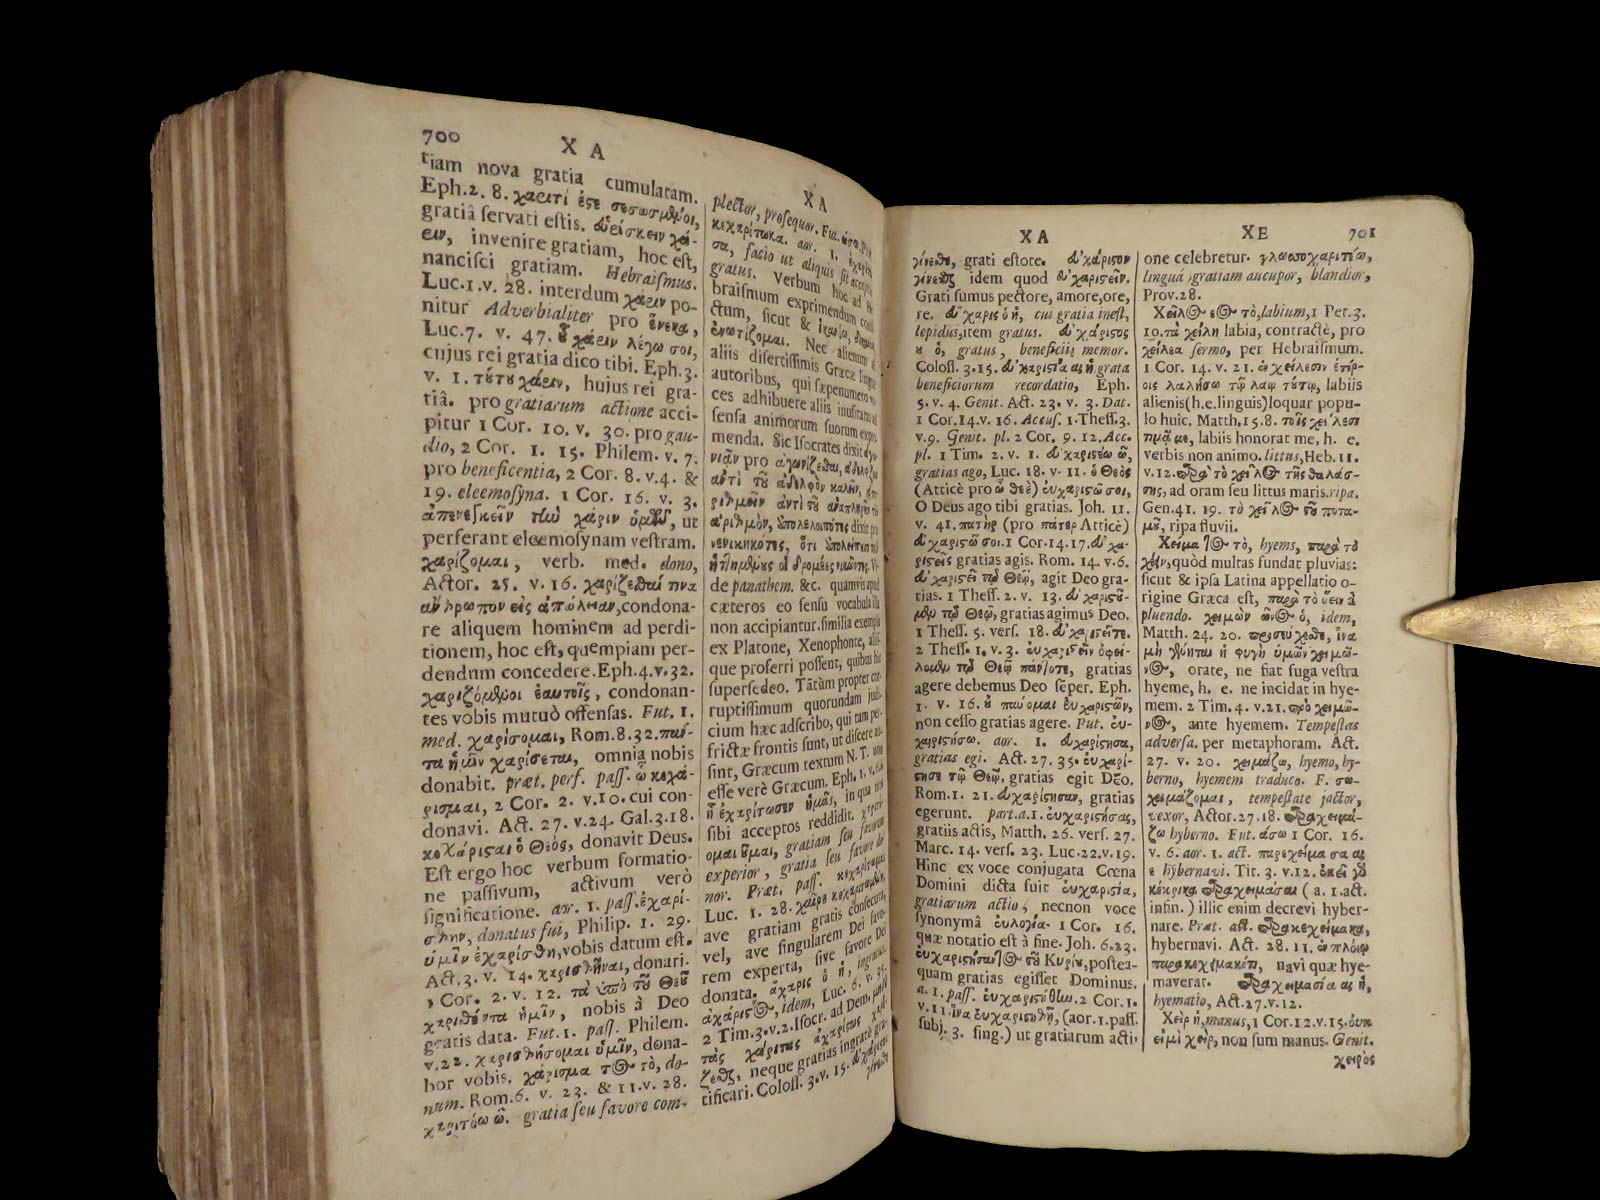 700 X A
tiam nova gratia cumulatam.
Eph.2. 8. χάριτί ἐςε σεσωσμένοι,
gratiâ servati estis. εὑρίσκειν χά-
ριν, invenire gratiam, hoc est,
nancisci gratiam. Hebraismus.
Luc.1.v. 28. interdum χάριν po-
nitur Adverbialiter pro ἕνεκα,
Luc.7. v. 47. οὗ χάριν λέγω σοι,
cujus rei gratia dico tibi. Eph.3.
v. 1. τούτου χάριν, hujus rei gra-
tiâ. pro gratiarum actione acci-
pitur 1 Cor. 10. v. 30. pro gau-
dio, 2 Cor. 1. 15. Philem. v. 7.
pro beneficentia, 2 Cor. 8. v.4. &
19. eleemosyna. 1 Cor. 16. v. 3.
ἀπενεγκεῖν τὴν χάριν ὑμῶν, ut
perferant eleemosynam vestram.
χαρίζομαι, verb. med. dono,
Actor. 25. v. 16. χαρίζεσθαί τινα
ἄνθρωπον εἰς ἀπώλειαν, condona-
re aliquem hominem ad perdi-
tionem, hoc est, quempiam per-
dendum concedere. Eph.4.v.32.
χαριζόμενοι ἑαυτοῖς, condonan-
tes vobis mutuò offensas. Fut. 1.
med. χαρίσομαι, Rom.8.32. πάν-
τα ἡμῖν χαρίσεται, omnia nobis
donabit. præt. perf. pass. ᾧ κεχά-
ρισμαι, 2 Cor. 2. v.10. cui con-
donavi. Act. 27. v.24. Gal.3.18.
κεχάρισαι ὁ Θεὸς, donavit Deus.
Est ergo hoc verbum formatio-
ne passivum, activum verò
significatione. aor. 1. pass. ἐχαρί-
σθην, donatus fui, Philip. 1. 29.
ὑμῖν ἐχαρίσθη, vobis datum est.
Act.3. v. 14. χαρισθῆναι, donari.
1 Cor. 2. v. 12. τὰ ὑπὸ τοῦ Θεοῦ
χαρισθέντα ἡμῖν, nobis à Deo
gratis data. Fut. 1. pass. Philem.
v.22. χαρισθήσομαι ὑμῖν, dona-
bor vobis. χάρισμα τος τὸ, do-
num. Rom.6. v. 23. & 11.v. 28.
χαριτόω ῶ. gratia seu favore com-
X A
plector, prosequor. Fut. ώσω. Pr.
κεχαρίτωκα. aor. 1. ἐχαρίτω
σα, facio ut aliquis sit acceptus
gratus. Verbum hoc ad He
braismum exprimendum
ctum, sicut &
ἐνωτίζομαι. Nec alienum
aliis disertissimis Græcæ linguæ
autoribus, qui sæpenumero vo-
ces adhibuere aliis inusitatas ad
sensa animorum suorum expri-
menda. Sic Isocrates dixit
pro ἀγωνίζεσθαι,
ἀντὶ τοῦ ἀδελφὸν καλεῖν,
ἀντὶ τοῦ
ἀριθμὸν, dixit pro
νενικηκότας, ὅτι
de panathem. &c. quamvis apud
cæteros eo sensu vocabula illa
non accipiantur. similia exempla
ex Platone, Xenophonte, aliis-
que proferri possent, quibus hic
supersedeo. Tãtùm propter cor-
ruptissimum quorundam judi-
cium hæc adscribo, qui tam per-
frictæ frontis sunt, ut dicere au-
sint, Græcum textum N. T. non
esse verè Græcum. Eph. 1. v.
ᾗ ἐχαρίτωσεν ἡμᾶς, in qua nos
sibi acceptos reddidit.
gratiam seu favorem
experior, gratia seu favore do-
nor. Præt. pass.
Luc. 1. 28. χαῖρε κεχαριτωμένη,
ave gratiam gratis consecuta,
vel, ave singularem Dei favo-
rem experta, sive favore Dei
donata. ἄχαρις ὁ ἡ, ingratus.
ἀχάριςος, idem, Luc. 6. v. 35.
2 Tim.3.v.2. Isocr. ad Dem.
τὰς χάριτας ἀχαρίςως
neque gratias ingratè gra-
tificari. Coloss. 3.v. 15.
X A
γίνεσθε, grati estote. εὐχάριςον
γίνεσθαι idem quod εὐχαριςεῖν.
Grati sumus pectore, amore, ore,
re. εὔχαρις ὁ ἡ, cui gratia inest,
lepidus, item gratus. εὐχάριςος
ου ὁ, gratus, beneficiis memor.
Coloss. 3.15. εὐχαριςία ας ἡ grata
beneficiorum recordatio, Eph.
5. v. 4. Genit. Act. 23. v. 3. Dat.
1 Cor.14.v. 16. Accus. 1.Thess.3.
v.9. Genit. pl. 2 Cor. 9. 12. Acc.
pl. 1 Tim. 2. v. 1. εὐχαριςέω ῶ,
gratias ago, Luc. 18. v. 11. ὁ Θεὸς
(Atticè pro ὦ θεὲ) εὐχαριςῶ σοι,
O Deus ago tibi gratias. Joh. 11.
v. 41. πατὴρ (pro πάτερ Atticè)
εὐχαριςῶ σοι. 1 Cor.14.17. εὐχα-
ριςεῖς gratias agis. Rom. 14. v.6.
εὐχαριςεῖ τῷ Θεῷ, agit Deo gra-
tias. 1 Thess. 2. v. 13. εὐχαριςοῦ-
μεν τῷ Θεῷ, gratias agimus Deo.
1 Thess. 5. vers. 18. εὐχαριςεῖτε.
2 Thess. 1. v. 3. εὐχαριςεῖν ὀφεί-
λομεν τῷ Θεῷ πάντοτε, gratias
agere debemus Deo sẽper. Eph.
1. v. 16. οὐ παύομαι εὐχαριςῶν,
non cesso gratias agere. Fut. εὐ-
χαριςήσω. aor. 1. εὐχαρίςησα,
gratias egi. Act. 27. 35. εὐχαρί-
ςησε τῷ Θεῷ, gratias egit Deo.
Rom.1. 21. εὐχαρίςησαν, gratias
egerunt. part.a.1. εὐχαριςήσας,
gratiis actis, Matth. 26. vers. 27.
Marc. 14. vers. 23. Luc.22.v.19.
Hinc ex voce conjugata Cœna
Domini dicta fuit εὐχαριςία,
gratiarum actio, necnon voce
synonymâ εὐλογία. 1 Cor. 16.
quæ notatio est à fine. Joh. 6.23.
εὐχαριςήσαντος τοῦ Κυρίου, postea-
quam gratias egisset Dominus.
a. 1. pass. εὐχαριςήθην. 2 Cor. 1.
v. 11. ἵνα εὐχαριςηθῇ, (aor. 1. pass.
subj. 3. sing.) ut gratiarum acti-
X E 701
one celebretur. γλωσσοχαριτόω,
linguâ gratiam aucupor, blandior,
Prov.28.
Χεῖλος εος τὸ, labium, 1 Pet. 3.
10. τὰ χείλη labia, contractè, pro
χείλεα sermo, per Hebraismum.
1 Cor. 14. v. 21. ἐν χείλεσιν ἑτέρ-
οις λαλήσω τῷ λαῷ τούτῳ, labiis
alienis (h.e. linguis) loquar popu-
lo huic. Matth. 15.8. τοῖς χείλεσί
τιμᾷ με, labiis honorat me, h. e.
verbis non animo. littus, Heb. 11.
v.12. παρὰ τὸ χεῖλος τῆς θαλάσ-
σης, ad oram seu littus maris. ripa.
Gen.41. 19. τὸ χεῖλος τοῦ ποτα-
μοῦ, ripa fluvii.
Χεῖμα τος τὸ, hyems, παρὰ τὸ
χέειν, quòd multas fundat pluvias:
sicut & ipsa Latina appellatio o-
rigine Græca est, παρὰ τὸ ὕειν à
pluendo. χειμὼν ῶνος ὁ, idem,
Matth. 24. 20. προσεύχεσθε, ἵνα
μὴ γένηται ἡ φυγὴ ὑμῶν χειμῶ-
νος, orate, ne fiat fuga vestra
hyeme, h. e. ne incidat in hye-
mem. 2 Tim. 4. v.21. πρὸ χειμῶ-
νος, ante hyemem. Tempestas
adversa. per metaphoram. Act.
27. v. 20. χειμάζω, hyemo, hy-
berno, hyemem traduco. F. σω.
χειμάζομαι, tempestate jactor,
vexor, Actor.27.18. παραχειμά-
ζω hyberno. Fut. άσω 1 Cor. 16.
v. 6. aor. 1. act. παρεχείμασα ας
ε hybernavi. Tit. 3. v.12. ἐκεῖ γὰρ
κέκρικα παραχειμάσαι ( a. 1. act.
infin. ) illic enim decrevi hyber-
nare. Præt. act. παρακεχείμακα,
hybernavi. Act. 28. 11. ἐν πλοίῳ
παρακεχειμακότι, navi quæ hye-
maverat. παραχειμασία ας ἡ,
hyematio, Act.27.v.12.
Χεὶρ ἡ, manus, 1 Cor.12.v.15. οὐκ
εἰμὶ χεὶρ, non sum manus. Genit.
χειρὸς